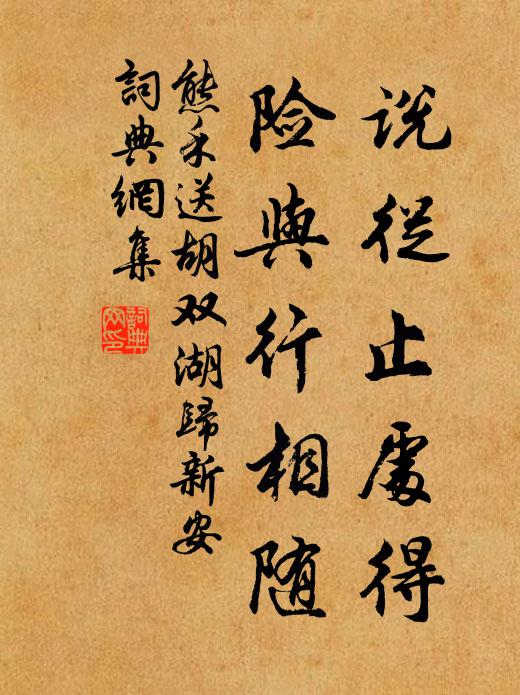 说從止處得
险與行相随
熊禾送胡双湖歸新安
詞典網集
詞典網印